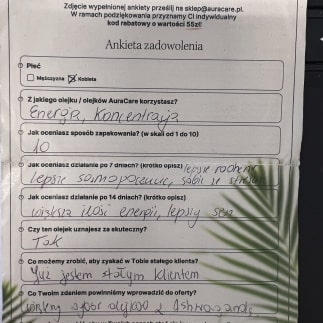 Zdjęcie wypełnionej ankiety prześlij na sklep@auracare.pl.
W ramach podziękowania przyznamy Ci indywidualny
kod rabatowy o wartości 55zł!
Ankieta zadowolenia
Płeć
Mężczyzna Kobieta
Z jakiego olejku / olejków AuraCare korzystasz?
Energa, Koncentracja
Jak oceniasz sposób zapakowania? (w skali od 1 do 10)
10
Jak oceniasz działanie po 7 dniach? (krótko opisz) lepsze
lepsze samopoczucie,
Jak oceniasz działanie po 14 dniach? (krótko opisz)
większa ilość energii, lepszy sen
Czy ten olejek uznajesz za skuteczny?
Tak
Co możemy zrobić, aby zyskać w Tobie stałego klienta?
Już jestem stałym klientem
Co Twoim zdaniem powinniśmy wprowadzić do oferty?
olejków z Ashwagandą